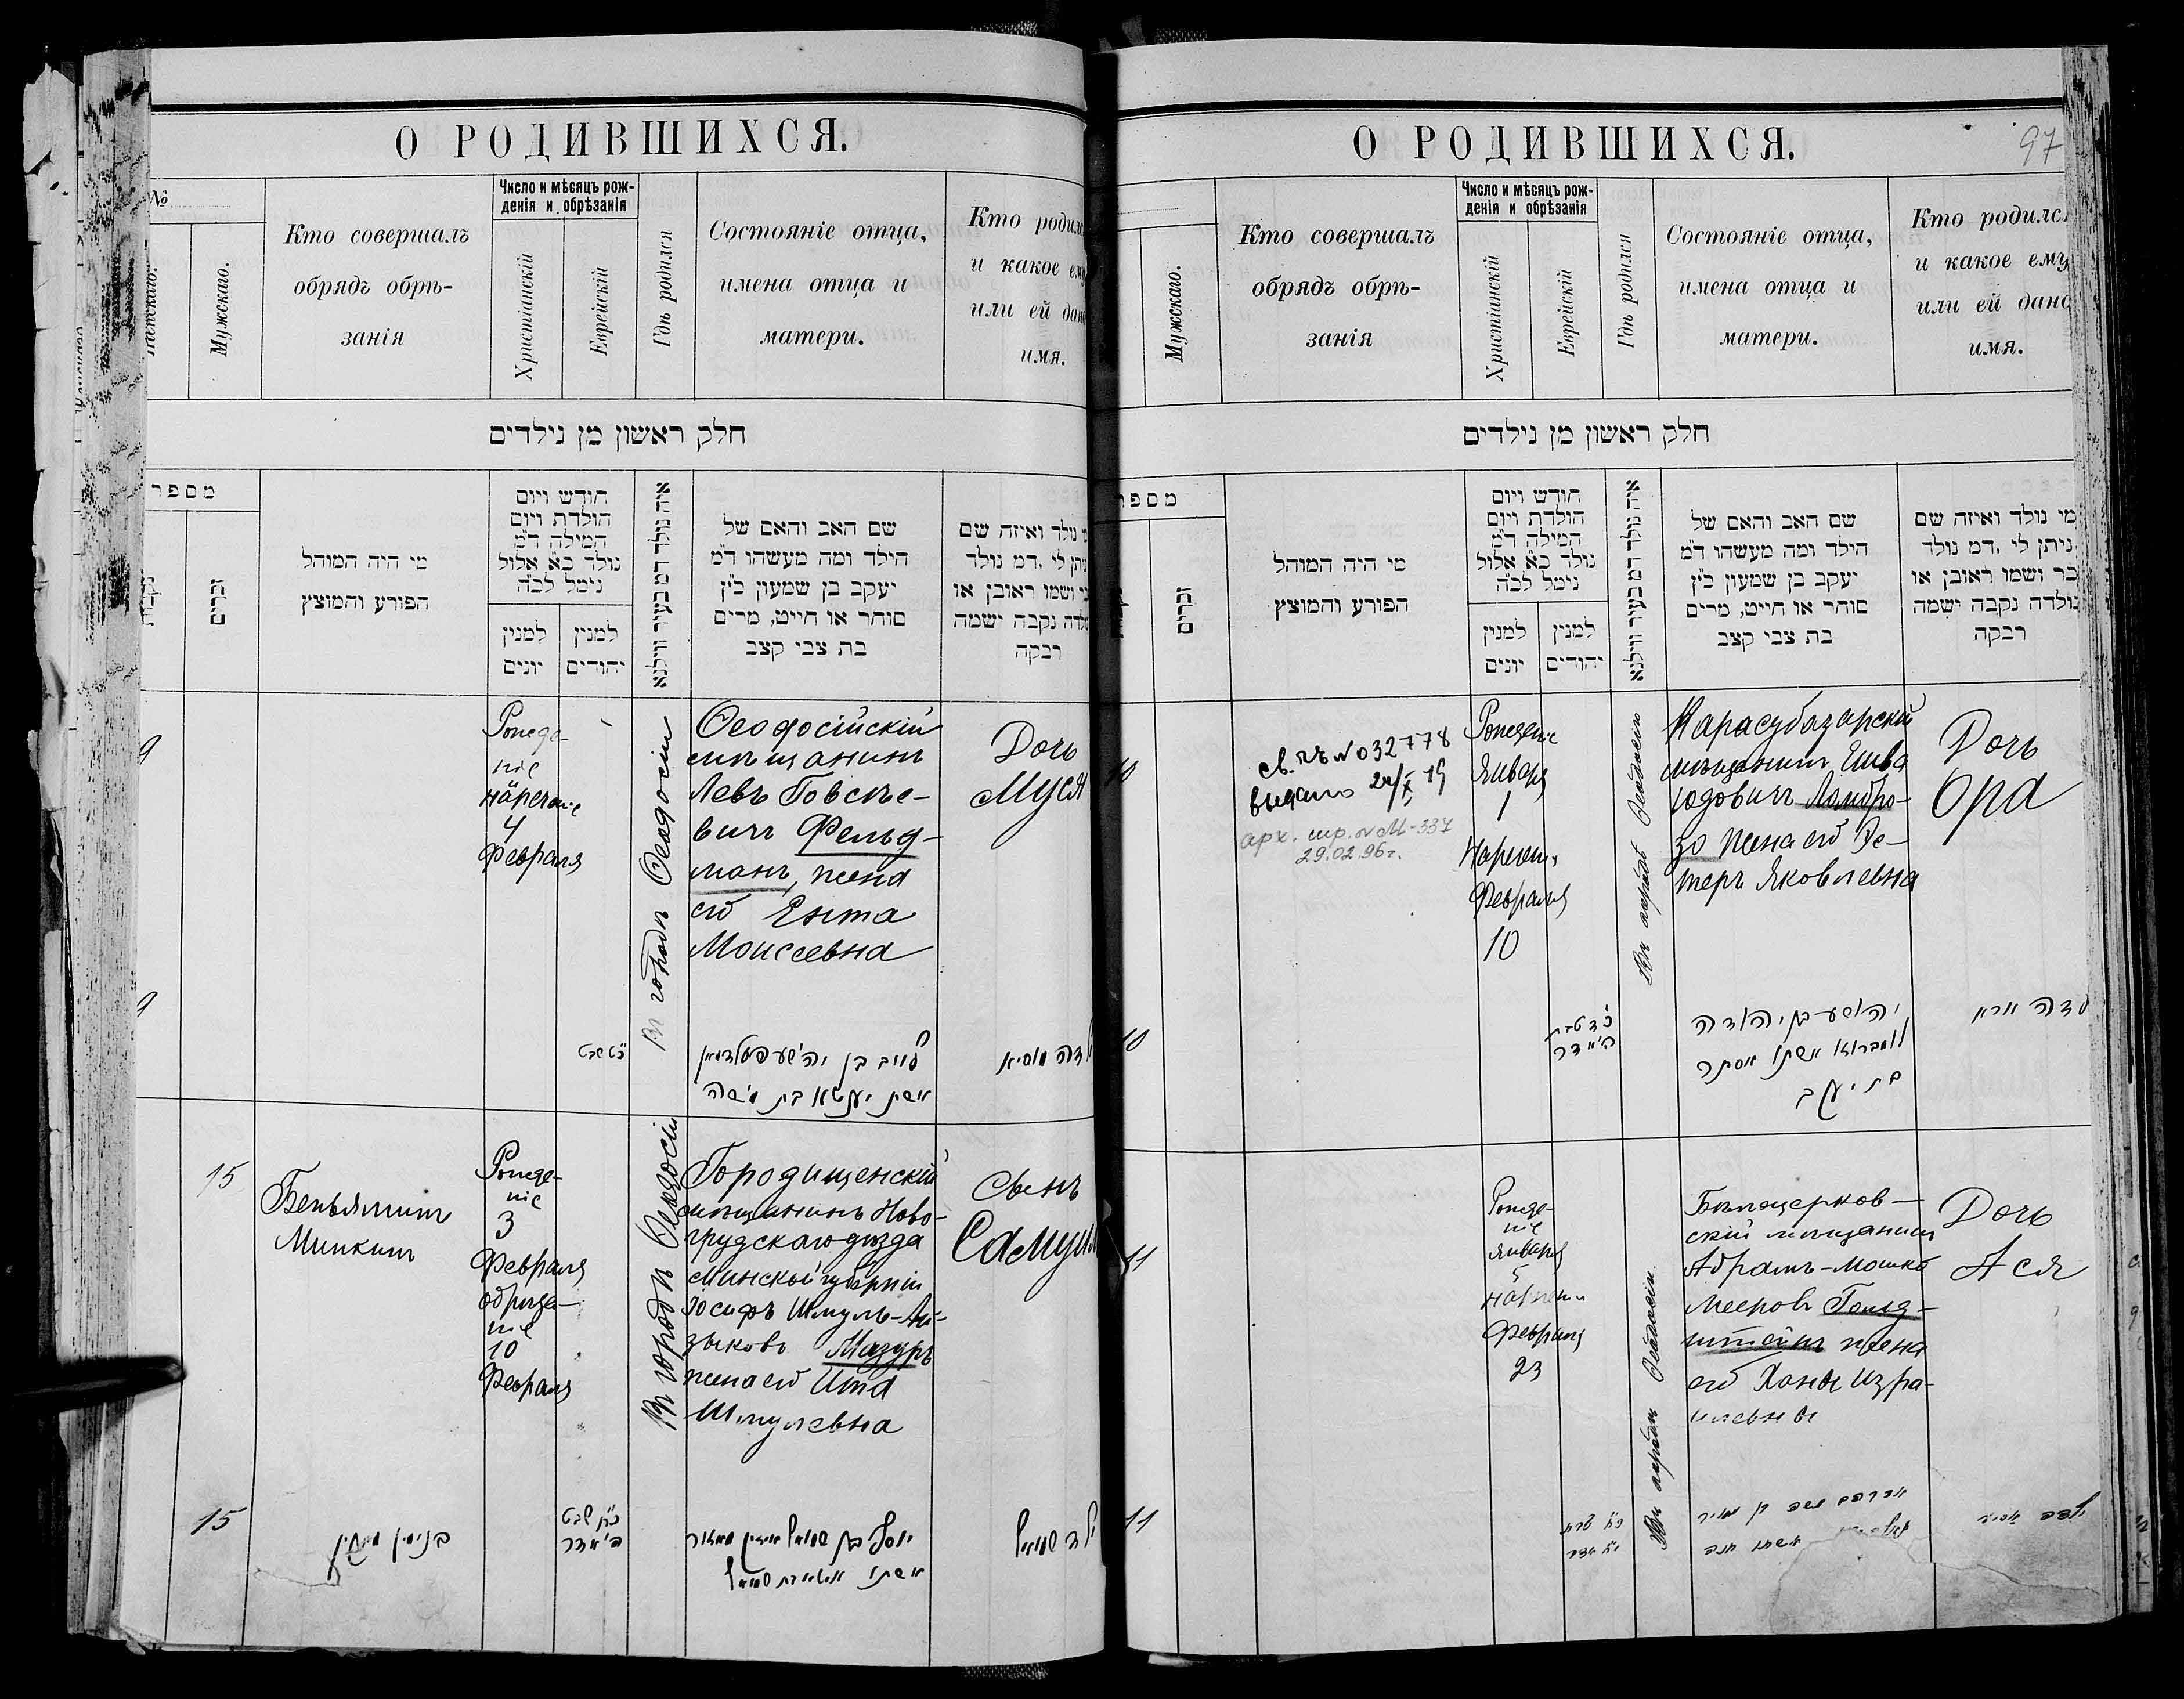 О РОДИВШИХСЯ.
№
Женскаго.
Мужскаго.
Кто совершалъ
обрядъ обрѣ-
занія
Число и мѣсяцъ рож-
денія и обрѣзанія
Христіанскій
Еврейскій
Гдѣ родился
Состояніе отца,
имена отца и
матери.
Кто родилс
и какое ему
или ей дан
имя.
חלק ראשון מן נילדים
מספר
זכרים
מי היה המוהל
הפורע והמוצץ
חודש ויום
הולדת ויום
המילה ד״מ
נולד כ״א אלול
נימל לכ״ה
למנין
יונים
למנין
יהודים
איה נולד דמ בעיר ווילנא
שם האב והאם של
הילד ומה מעשהו ד״מ
יעקב בן שמעון כ״ץ
סוחר או חייט, מרים
בת צבי קצב
נולד ואיזה שם
ניתן לי ,דמ נולד
ושמו ראובן או
נקבה ישמה
רבקה
9
Рожде-
ніе
нареченіе
4
Февраля
Въ городѣ Ѳеодосіи
Ѳеодосійскій
мѣщанинъ
Левъ Говсѣе-
вичъ Фельд-
манъ, жена
его Ента
Моисеевна
Дочь
Муся
9
כ״ט שבט
לייב בן יהושע פעלדמאן
אשתו יענטא בת משה
ילדה מוסיא
15
Беньяминъ
Минкинъ
Рожде-
ніе
3
Февраля
обрѣза-
ніе
10
Февраля
Въ городѣ Ѳеодосіи
Городищенскій
мѣщанинъ Ново-
грудскаго уѣзда
Минской губерніи
Іосифъ Шмуль-Ай-
зыковъ Мазуръ
жена его Ита
Шмулевна
Сынъ
Самуил
15
בנימין מינקין
כ״ח שבט
ה׳ אדר
יוסף בן שמואל אייזיק מאזור
אשתו איטא בת שמואל
ילד שמואל
О РОДИВШИХСЯ.
97
Мужскаго.
Кто совершалъ
обрядъ обрѣ-
занія
Число и мѣсяцъ рож-
денія и обрѣзанія
Христіанскій
Еврейскій
Гдѣ родился
Состояніе отца,
имена отца и
матери.
Кто родилс
и какое ему
или ей дано
имя.
חלק ראשון מן נילדים
מספר
זכרים
מי היה המוהל
הפורע והמוצץ
חודש ויום
הולדת ויום
המילה ד״מ
נולד כ״א אלול
נימל לכ״ה
למנין
יונים
למנין
יהודים
איה נולד דמ בעיר ווילנא
שם האב והאם של
הילד ומה מעשהו ד״מ
יעקב בן שמעון כ״ץ
סוחר או חייט, מרים
בת צבי קצב
מי נולד ואיזה שם
ניתן לי ,דמ נולד
זכר ושמו ראובן או
נולדה נקבה ישמה
רבקה
10
св. № 032778
выдано
арх. М-337
29.02.96г.
Рожденіе
Января
1
Нареченія
Февраля
10
Въ городѣ Ѳеодосіи
Карасубазарскій
мѣщанинъ Ешва
Юдовичъ Ломбро-
зо жена его Эс-
теръ Яковлевна
Дочь
Ора
10
כ״ד טבת
ה׳ אדר
יהושע בן יהודה
לומברוזו אשתו אסתר
בת יעקב
ילדה אורא
11
Рожде-
ніе
Января
5
Февраля
23
Въ городѣ Ѳеодосіи
Бѣлоцерков-
скій мѣщанинъ
Абрамъ-Мошко
Мееровъ Гольд-
штейнъ жена
его Ханы Изра-
илевны
Дочь
Ася
11